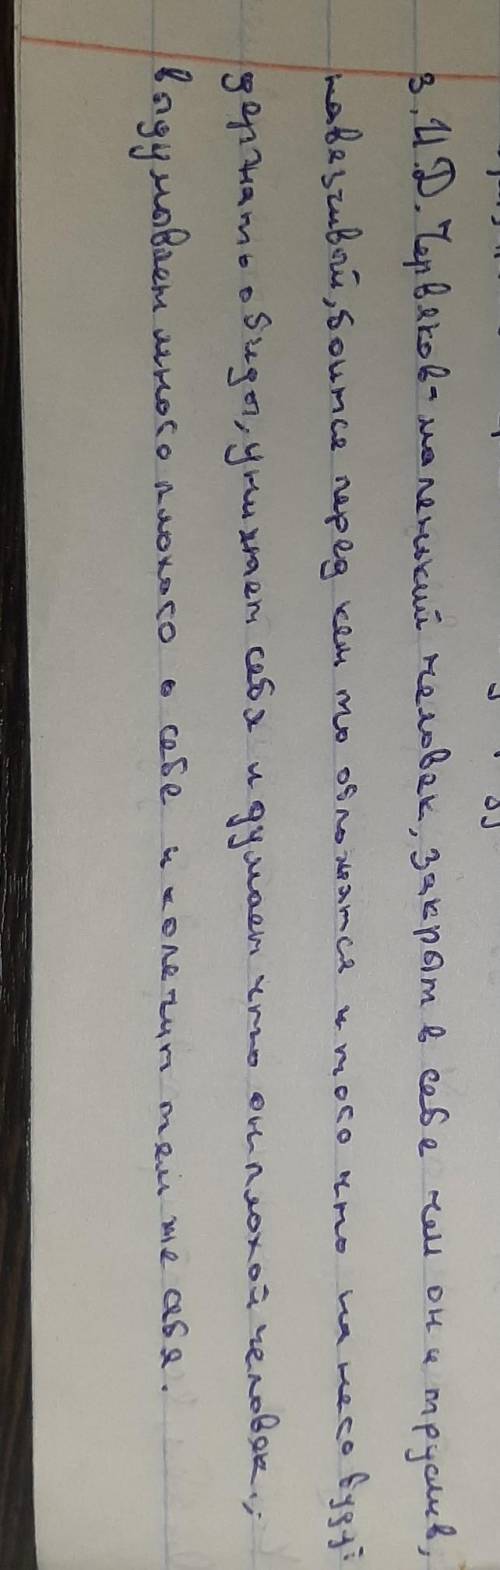 3. И.Д. Червяков - маленький человек, закрыт в себе чем он и труслив,
навезчивой, боится перед кем то обложятся и того что на него будут
держать обиды, унижает себя и думает что он плохой человек.,
выдумывает много плохого о себе и колечит тем же себя.